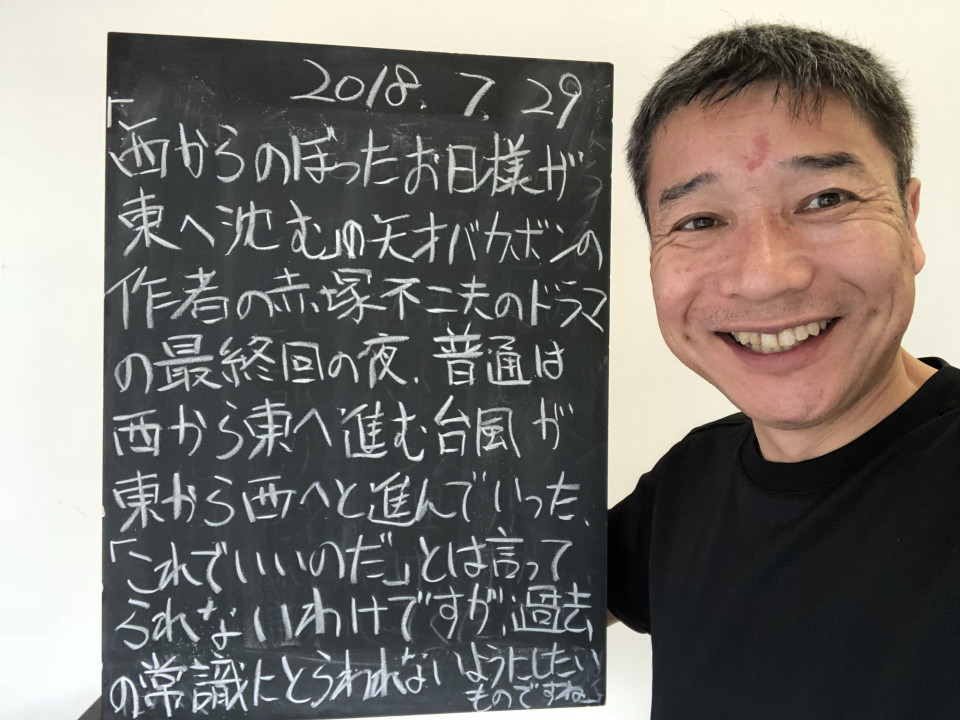 2018.7.29
「西からのぼったお日様が
東へ沈む」の天才バカボンの
作者の赤塚不二夫のドラマ
の最終回の夜、普通は
西から東へ進む台風が
東から西へと進んでいった。
「これでいいのだ」とは言って
られないわけですが、過去
の常識にとらわれないようにしたい
ものですね。